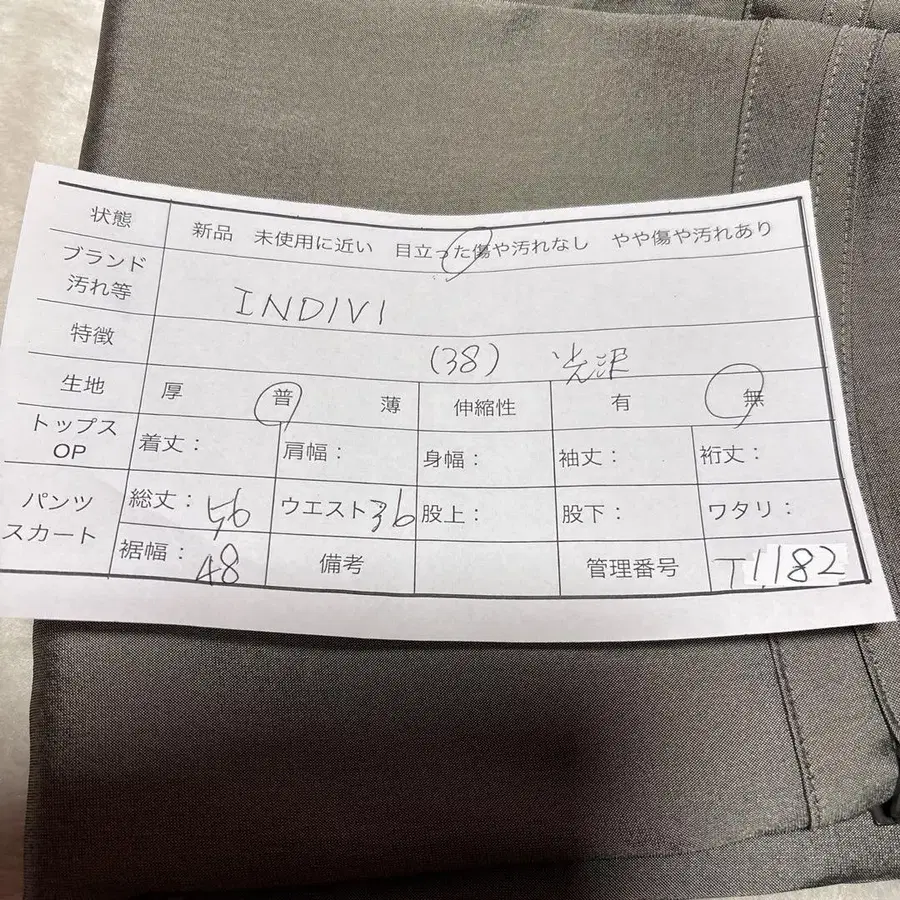 状態 新品 未使用に近い 目立った傷や汚れなし やや傷や汚れあり
ブランド
汚れ等 INDIVI
特徴 (38) 光沢
生地 厚 普 薄 伸縮性 有 無
トップス
OP 着丈： 肩幅： 身幅： 袖丈： 裄丈：
パンツ
スカート 総丈：56 ウエスト36 股上： 股下： ワタリ：
裾幅：48 備考 管理番号 T1,182